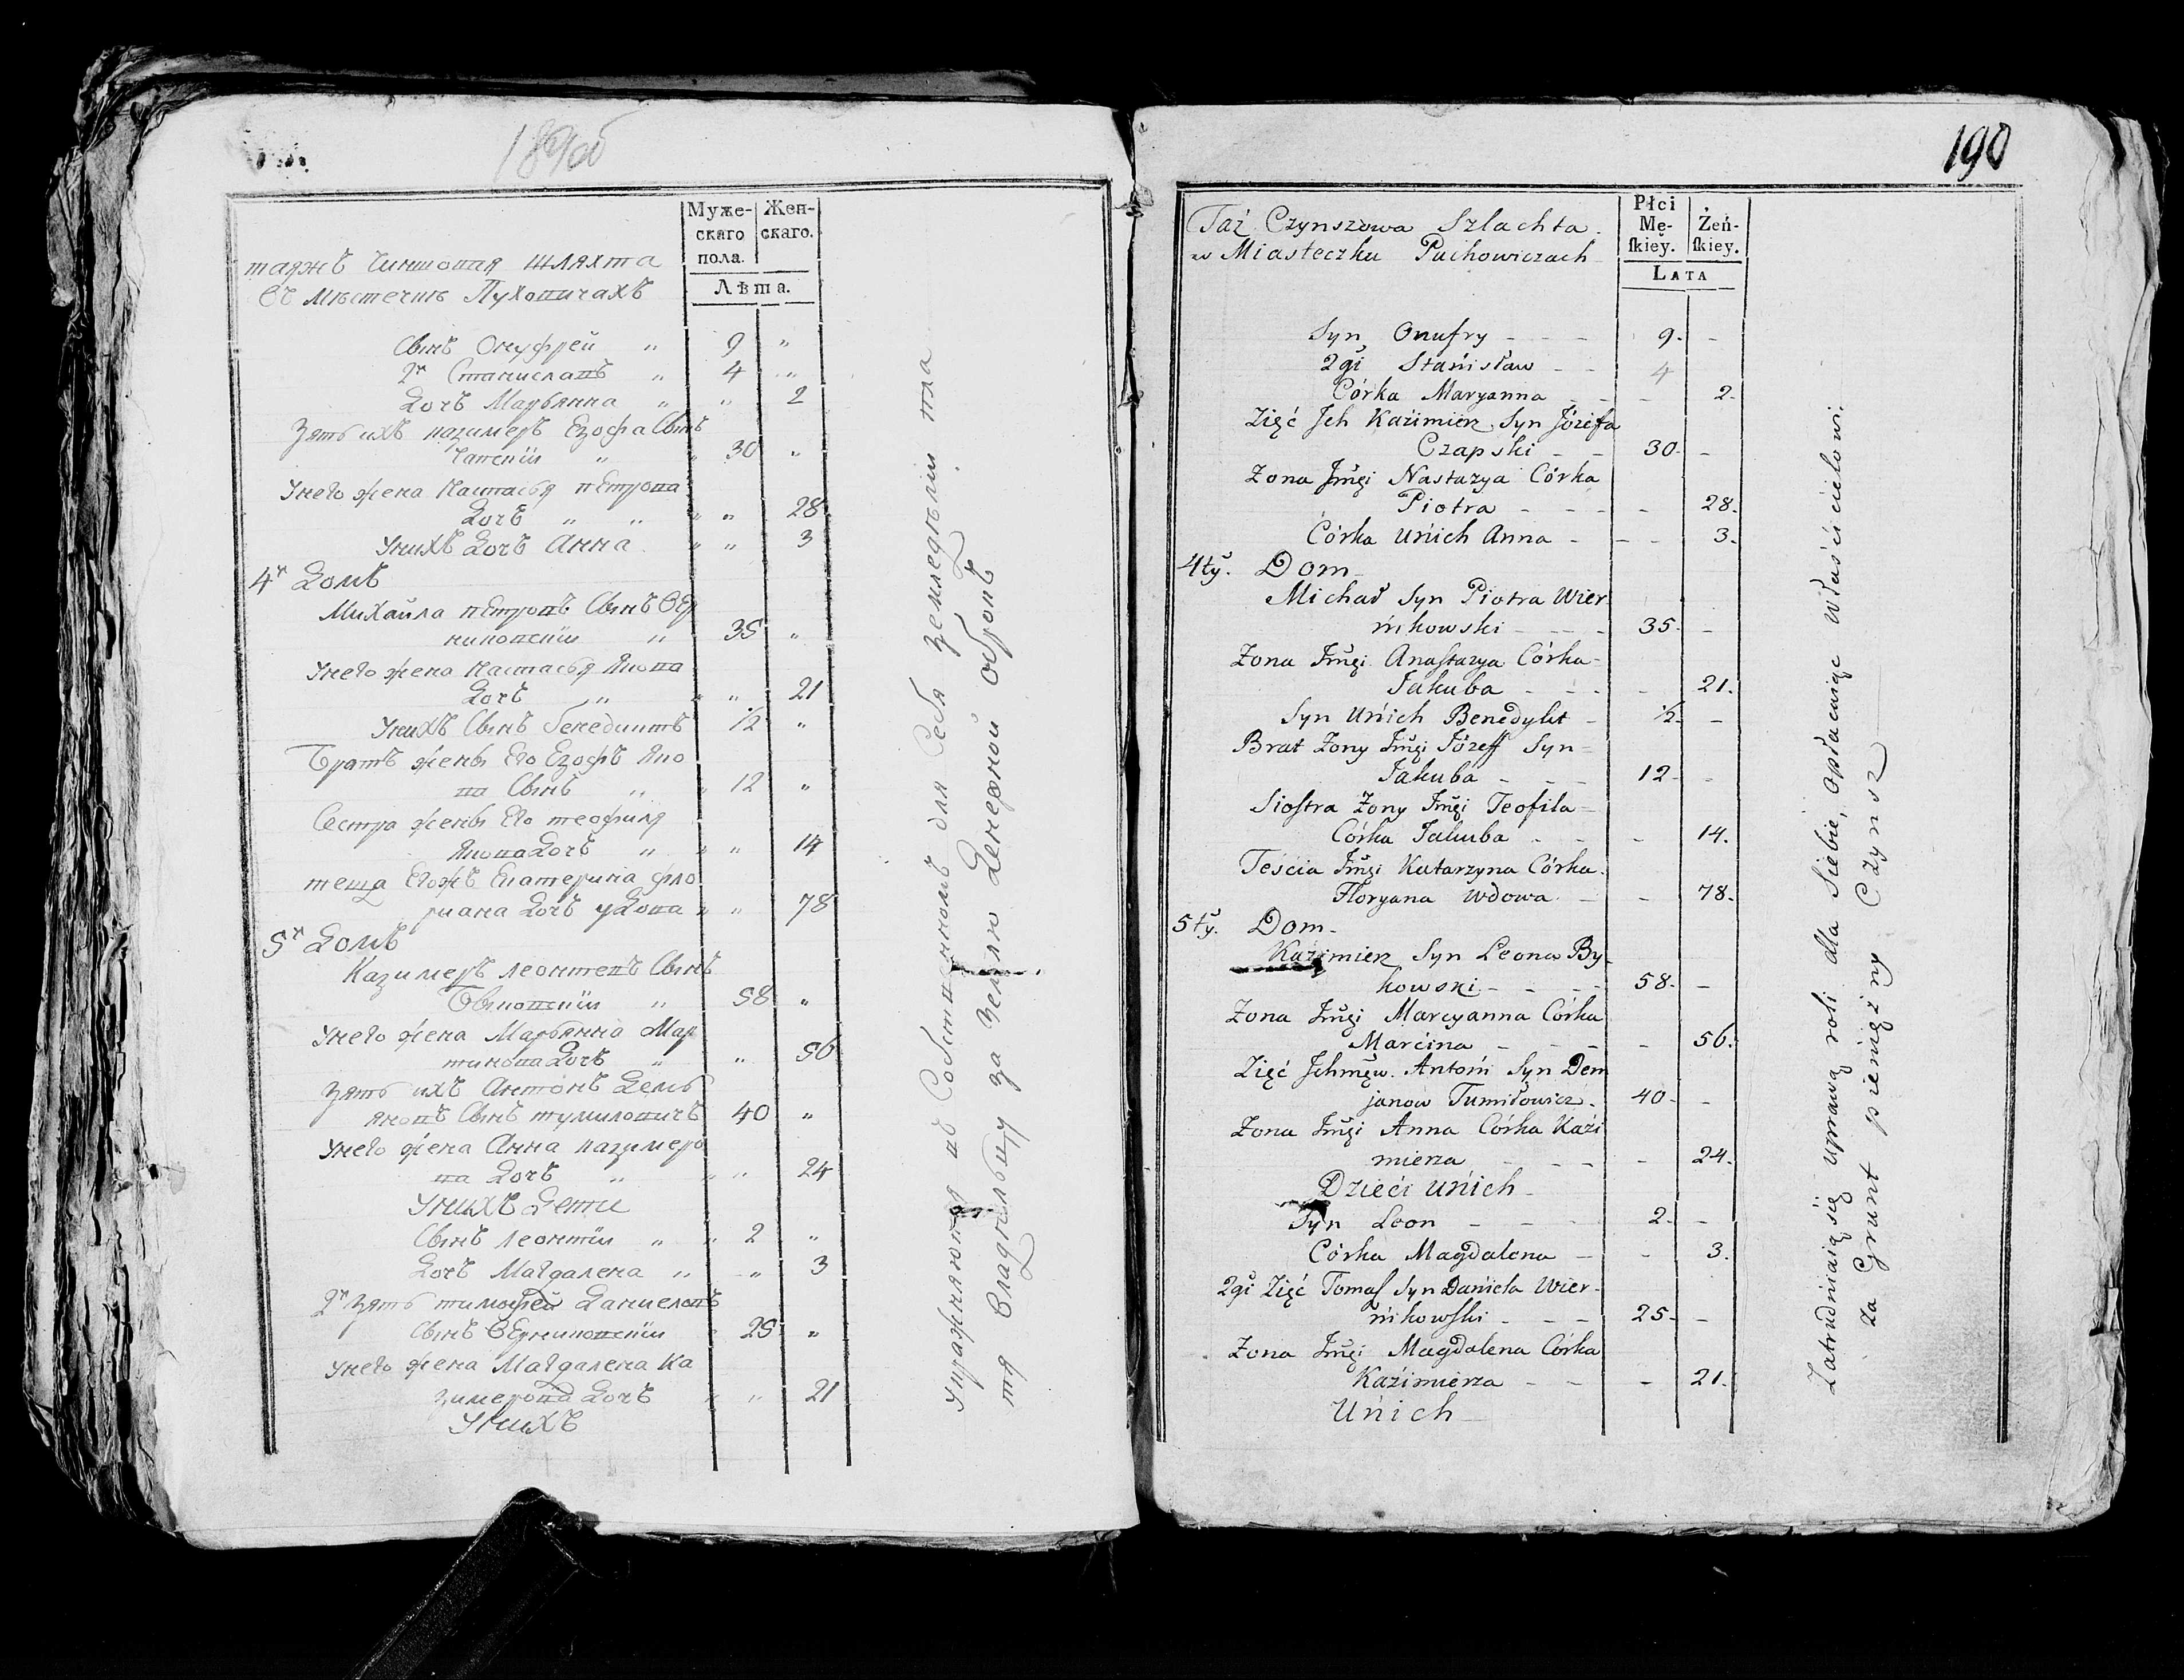 189об
Муже-
скаго
пола.
Жен-
скаго.
Лѣта.
таяжъ Чиншовая шляхта
въ мѣстечкѣ Пуховичахъ
Сынъ Онуфрей „ 9 „
2й Станиславъ „ 4 „
Дочь Марьянна „ „ 2
Зять ихъ казимеръ Езофа Сынъ
Чапскій „ „ 30 „
Унего жена Настасья пЕтрова
Дочь „ „ „ „ 28
Унихъ Дочь Анна „ „ 3
4й Домъ
Михайла пЕтровъ Сынъ ВЕр
никовскій „ 35 „
Унего жена Настасья Якова
Дочь „ „ „ 21
Унихъ Сынъ бенедиктъ 1/2 „
Братъ жены Его Езофъ Яко
ва Сынъ „ „ 12 „
Сестра жены Его теофиля
Якова Дочь „ „ „ 14
теща Егожъ Екатерина фло
риана Дочь уДова „ „ 78
5й Домъ
Казимеръ леонтевъ Сынъ
Быковскій „ 58 „
Унего жена Марьянна Мар
тинова Дочь „ „ 56
Зять ихъ Антонъ Демь
яновъ Сынъ тумиловичъ 40 „
Унего жена Анна казимеро
ва Дочь „ „ „ 24
Унихъ Дети
Сынъ леонтій „ „ 2 „
Дочь Магдалена „ „ 3
2й Зять тимофей Даниеловъ
Сынъ ВЕрниковскій „ 25 „
Унего жена Магдалена Ка
зимерова Дочь „ „ 21
Унихъ
Упражняются въ Собственномъ для Себя Земледѣліи пла
тя Владѣльцу за Землю Денежной оброкъ
190
Płci
Mę-
ſkiey.
Żeń-
ſkiey.
LATA
Taż Czynszowa Szlachta
w Miasteczku Puchowiczach
Syn Onufry - - - 9. -
2gi Stanisław - - 4
Córka Maryanna - - - 2.
Zięć Jch Kazimierz Syn Józefa
Czapski - - 30. -
Zona Jmgi Nastazya Córka
Piotra - - - - - 28.
Córka Unich Anna - - - 3.
4ty. Dom
Michał Syn Piotra Wier
nikowski - - - 35. -
Zona Jmgi Anaſtazya Córka
Jakuba - - - - 21.
Syn Unich Benedykt - 1/2 -
Brat Zony Jmgi Józeff Syn
Jakuba - - - 12. -
Sioſtra Zony Jmgi Teofila
Córka Jakuba - - - 14.
Teścia Jmgi Katarzyna Córka
Floryana Wdowa - - 78.
5ty. Dom
Kazimierz Syn Leona By-
kowski - - - - 58. -
Zona Jmgi Marcyanna Córka
Marcina - - - - - 56.
Zięć Jchmęw. Antoni Syn Dem
janow Tumiłowicz - 40. -
Zona Jmgi Anna Córka Kazi
mierza - - - - 24.
Dzieci Unich
Syn Leon - - - 2. -
Córka Magdalena - - 3.
2gi Zięć Tomaſ Syn Daniela Wier-
nikowſki - - - 25. -
Zona Jmgi Magdalena Córka
Kazimierza - - - 21.
Unich
Zatrudniaią się uprawą roli dla Siebie, opłacaiąc Właścicielowi
za Grunt pieniężny Czynsz